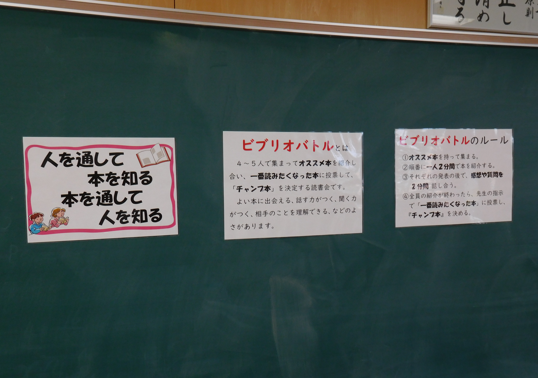 人を通して
本を知る
本を通して
人を知る
ビブリオバトルとは
4~5人で集まってオススメ本を紹介し
合い、一番読みたくなった本に投票して、
「チャンプ本」を決定する読書会です。
よい本に出会える、話す力がつく、聞く力
がつく、相手のことを理解できる、などのよ
さがあります。
ビブリオバトルのルール
①オススメ本を持って集まる。
②順番に一人2分間で本を紹介する。
③それぞれの発表の後で、感想や質問を
2分間 話し合う。
④全員の紹介が終わったら、先生の指示
で「一番読みたくなった本」に投票し、
「チャンプ本」を決める。